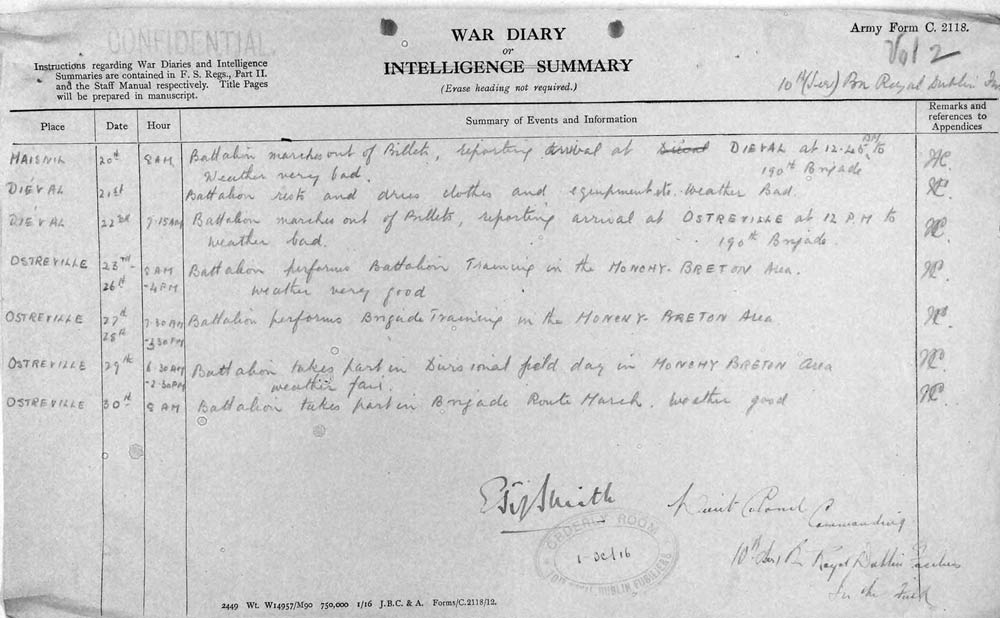 CONFIDENTIAL
WAR DIARY
or
INTELLIGENCE SUMMARY
(Erase heading not required.)
Army Form C. 2118.
Vol 2
10th (Ser) Bn Royal Dublin Fus
Instructions regarding War Diaries and Intelligence
Summaries are contained in F. S. Regs., Part II.
and the Staff Manual respectively. Title Pages
will be prepared in manuscript.
Place Date Hour Summary of Events and Information Remarks and references to Appendices
MAISNIL 20th 8 AM Battalion marches out of Billets, reporting arrival at DIEVAL at 12-45 PM to
Weather very bad. 190th Brigade
DIÉVAL 21st Battalion rests and dries clothes and equipment etc. Weather Bad.
DIÉVAL 22nd 9.15 AM Battalion marches out of Billets, reporting arrival at OSTREVILLE at 12 P.M to
weather bad. 190th Brigade.
OSTREVILLE 23rd 8 AM Battalion performs Battalion Training in the MONCHY-BRETON Area.
26th -4 PM weather very good
OSTREVILLE 27th 7.30 AM Battalion performs Brigade Training in the MONCHY-BRETON Area
28th -3.30 PM
OSTREVILLE 29th 6.30 AM Battalion takes part in Divisional field day in MONCHY BRETON Area
-2.30 PM weather fair.
OSTREVILLE 30th 8 AM Battalion takes part in Brigade Route March. Weather good
Smith Lieut Colonel
Commanding
10th (Ser) Bn Royal Dublin Fusiliers
In the Field
ORDERLY ROOM
1-Oct 16
DUBLIN FUSILIERS
2449 Wt. W14957/M90 750,000 1/16 J.B.C. & A. Forms/C.2118/12.